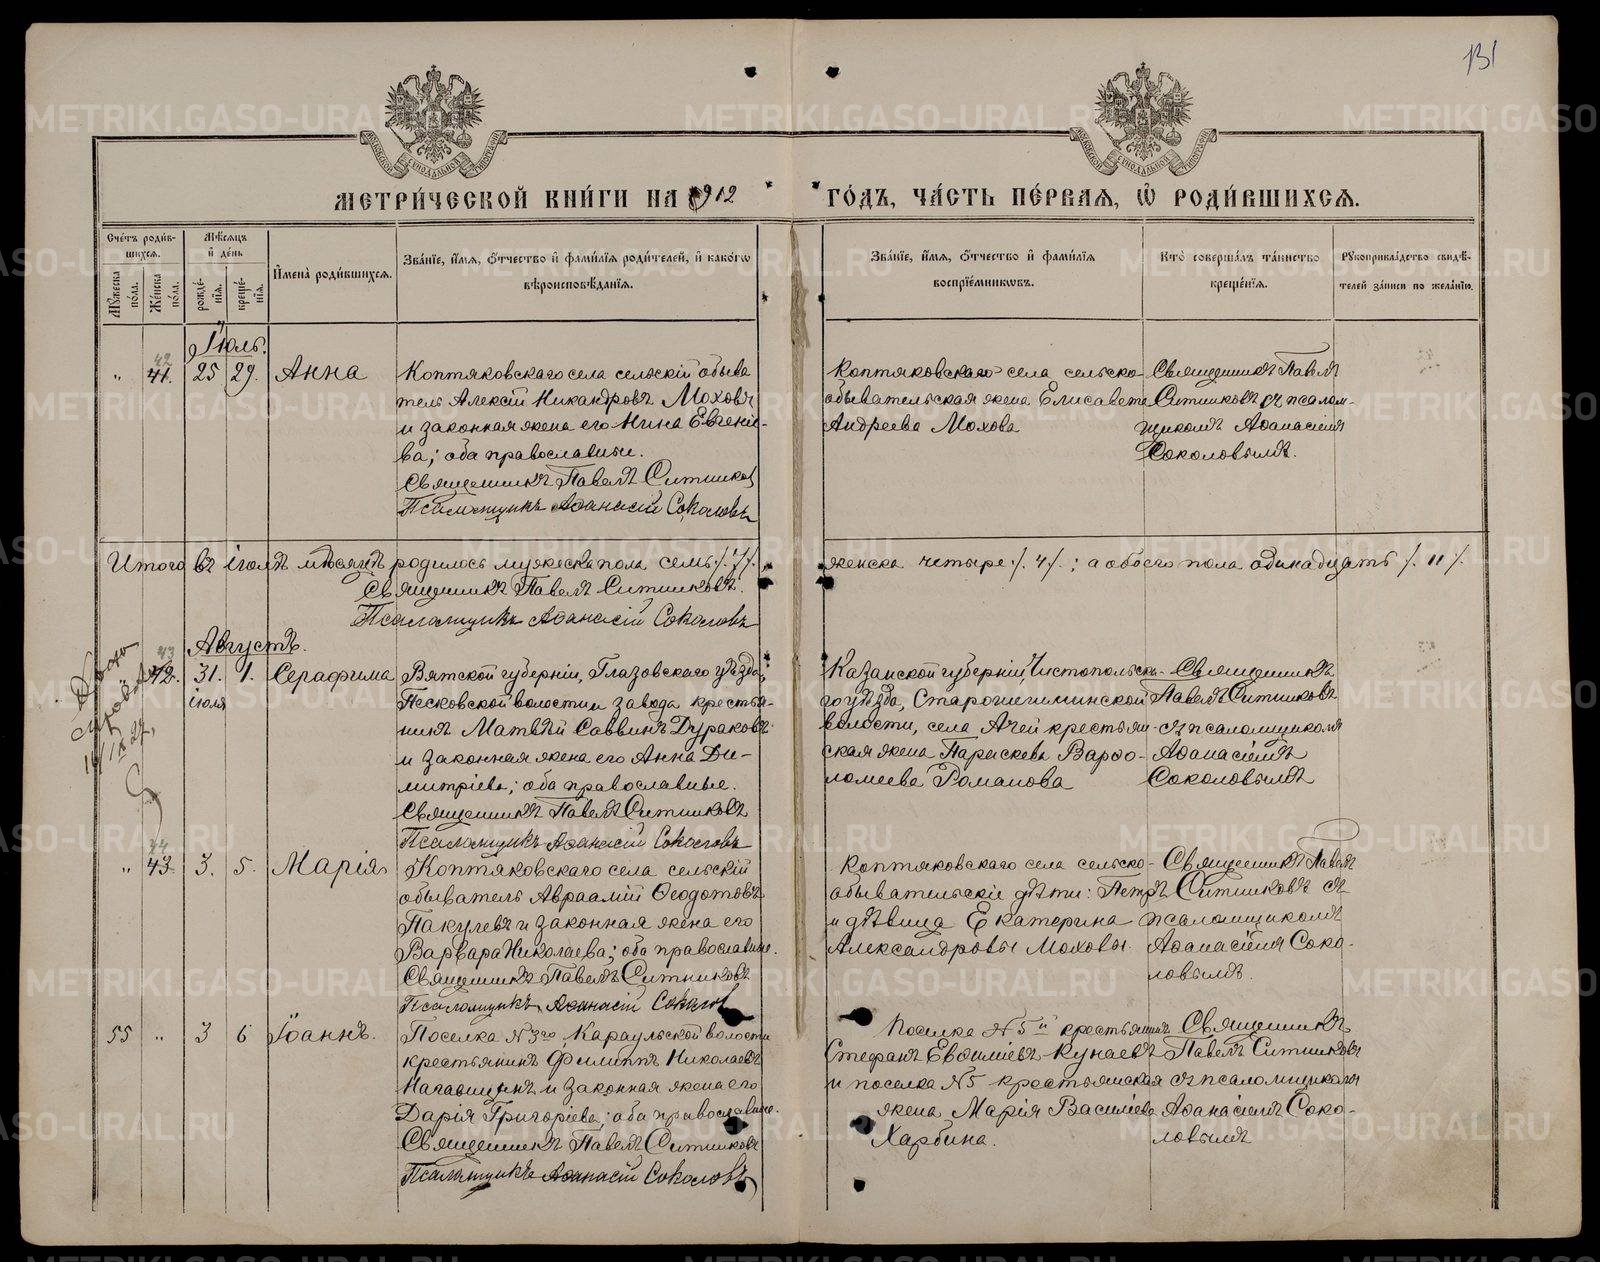 131
МЕТРИЧЕСКОЙ КНИГИ НА 1912 ГОДЪ, ЧАСТЬ ПЕРВАЯ, Ѡ РОДИВШИХСЯ.
Счетъ родив-
шихся.
Мужеска
пола.
Женска
пола.
Мѣсяцъ
и день
рожде-
нія.
креще-
нія.
Имена родившихся.
Званіе, имя, отчество и фамилія родителей, и какогѡ
вѣроисповѣданія.
Званіе, имя, отчество и фамилія
воспріемникѡвъ.
Кто совершалъ таинство
крещенія.
Рукоприкладство свидѣ-
телей записи по желанію.
Іюль.
42
" 41. 25 29. Анна
Коптяковскаго села сельскій обыва
тель Алексій Никандровъ Моховъ
и законная жена его Нина Евгеніе-
ва; оба православные.
Священникъ Павелъ Ситниковъ
Псаломщикъ Аѳанасій Соколовъ
Коптяковскаго села сельско-
обывательская жена Елисавета
Андреева Мохова
Священникъ Павелъ
Ситниковъ съ псалом-
щикомъ Аѳанасіемъ
Соколовымъ.
Итого въ іюлѣ мѣсяцѣ родилось мужеска пола семь /.7/. женска четыре /. 4/. ; а обоего пола одинадцать /. 11 /.
Священникъ Павелъ Ситниковъ.
Псаломщикъ Аѳанасій Соколовъ
Августъ.
43
42. 31. 1. Серафима
іюля
Вятской губерніи, Глазовскаго уѣзда,
Песковской волости и завода крестья-
нинъ Матвѣй Саввинъ Дураковъ
и законная жена его Анна Ди-
митріева; оба православные.
Священникъ Павелъ Ситниковъ
Псаломщикъ Аѳанасій Соколовъ
Казанской губерніи, Чистопольска-
го уѣзда,
волости, села Ачей крестьян-
ская жена Параскева Варѳо-
ломеева Романова
Священникъ
Павелъ Ситниковъ
съ псаломщикомъ
Аѳанасіемъ
Соколовымъ
44
" 43. 3. 5. Марія
Коптяковскаго села сельскій
обыватель Авраамій Ѳеодотовъ
Пакулевъ и законная жена его
Варвара Николаева; оба православные.
Священникъ Павелъ Ситниковъ
Псаломщикъ Аѳанасій Соколовъ
Коптяковскаго села сельско-
обывательскіе дѣти: Петръ
и дѣвица Екатерина
Александровы Моховы.
Священникъ Павелъ
Ситниковъ съ
псаломщикомъ
Аѳанасіемъ Соко-
ловымъ.
55 " 3 6 Іоаннъ.
Поселка №3го, Караульской волости
крестьянинъ Филиппъ Николаевъ
и законная жена его
Дарія Григоріева; оба православные.
Священникъ Павелъ Ситниковъ
Псаломщикъ Аѳанасій Соколовъ
Поселка №5й крестьянинъ
Стефанъ Евѳиміевъ Кунаевъ
и поселка №5 крестьянская
жена Марія Василіева
Харбина.
Священникъ
Павелъ Ситниковъ
съ псаломщикомъ
Аѳанасіемъ Соко-
ловымъ
METRIKI.GASO-URAL.RU